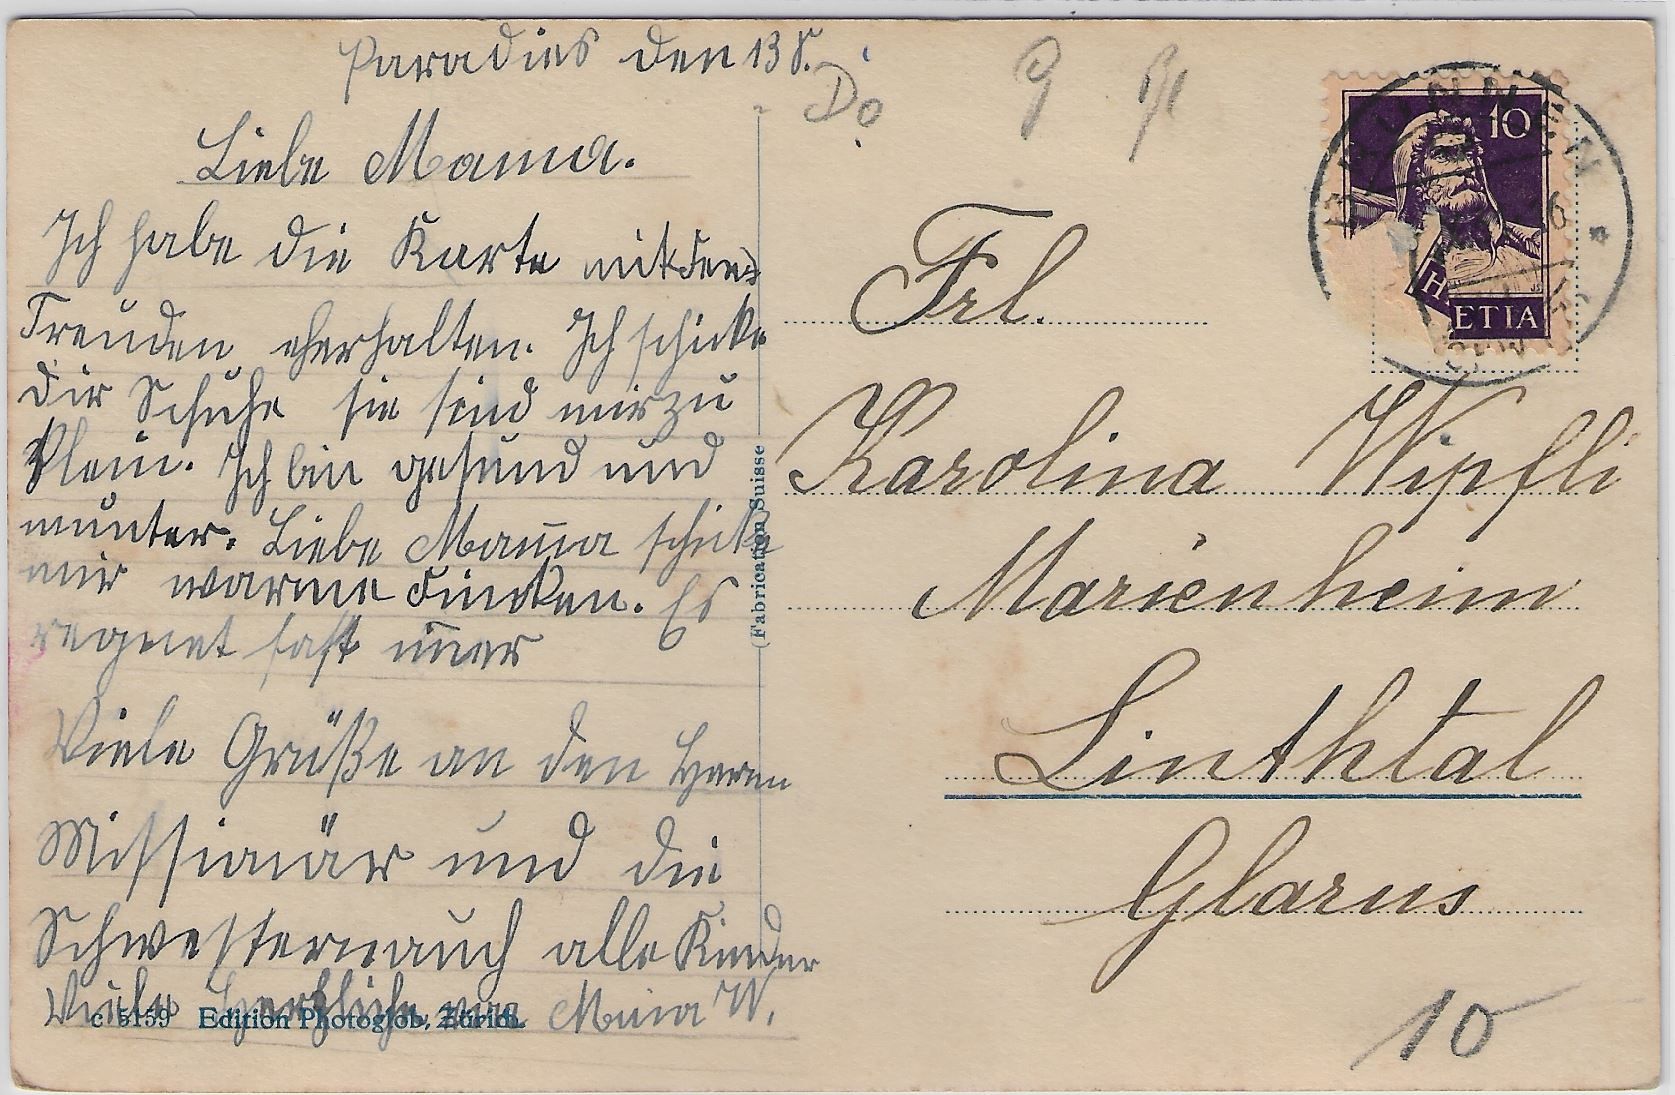 Paradies den 13 S.
Liebe Mama.
Ich habe die Karte mit den
Freuden eherhalten. Ich schicke
dir Schuhe sie sind mir zu
klein. Ich bin gesund und
munter. Liebe Mama schike
mir warme Finken. Es
regnet fast im̄er
Viele Grüße an den Herrn
Missionär und die
Schwestern auch alle Kinder
Viele von W.
c 5159 Edition Photoglob, Zürich.
(Fabrication Suisse)
Do
10
HELVETIA
BRUNNEN
Frl.
Karolina Wipfli
Marienheim
Linthtal
Glarus
10